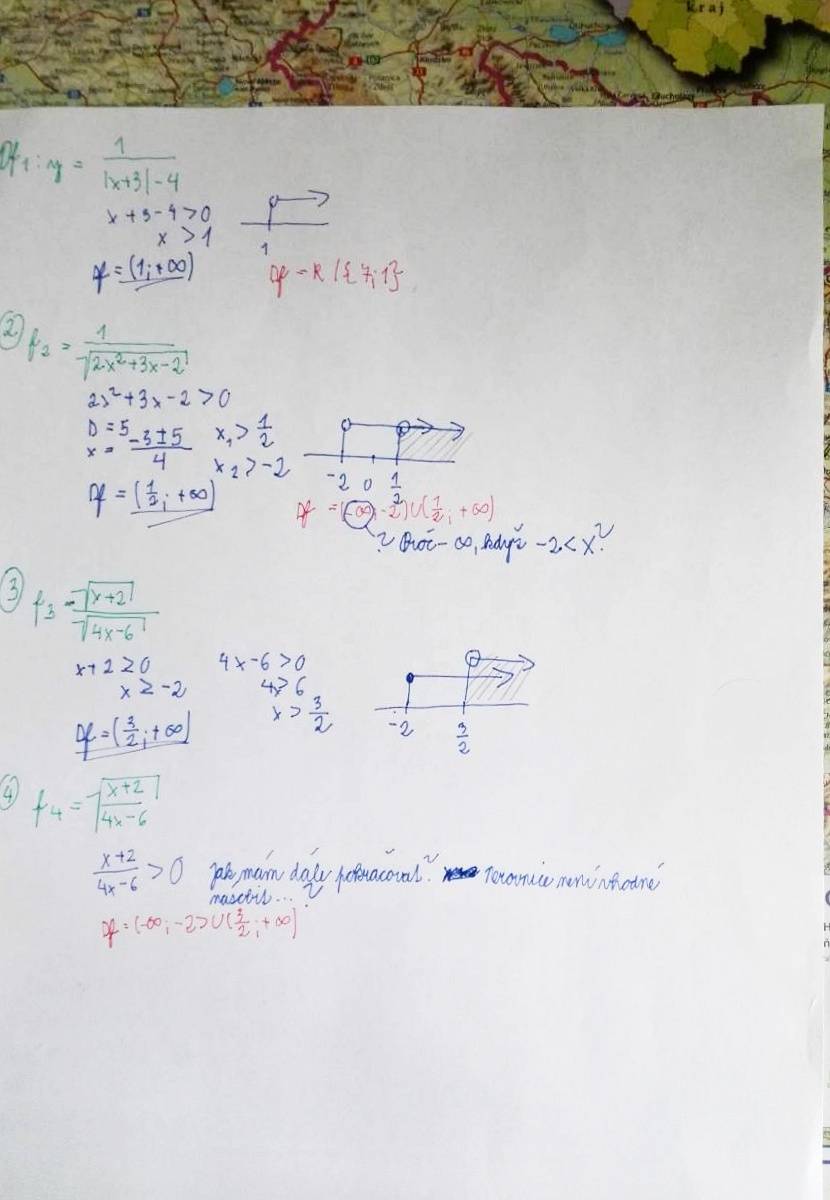 kraj
Df1: y = 1 / (|x+3|-4)
x+3-4>0
x > 1
1
Df = (1; +∞)
Df = R / {7; 1}
② f2 = 1 / √(2x²+3x-2)
2x²+3x-2>0
D = 5
x = (-3±5)/4
x1 > 1/2
x2 > -2
-2 0 1/2
Df = (1/2; +∞)
Df = (-∞; -2) ∪ (1/2; +∞)
? Proč -∞, když -2 < x?
③ f3 = √(x+2) / √(4x-6)
x+2 ≥ 0 4x-6>0
x ≥ -2 4x>6
x > 3/2
-2 3/2
Df = (3/2; +∞)
④ f4 = √((x+2)/(4x-6))
(x+2)/(4x-6) > 0 Jak mám dále pokračovat? nerovnice není vhodné
násobit... ?
Df = (-∞; -2> ∪ (3/2; +∞)